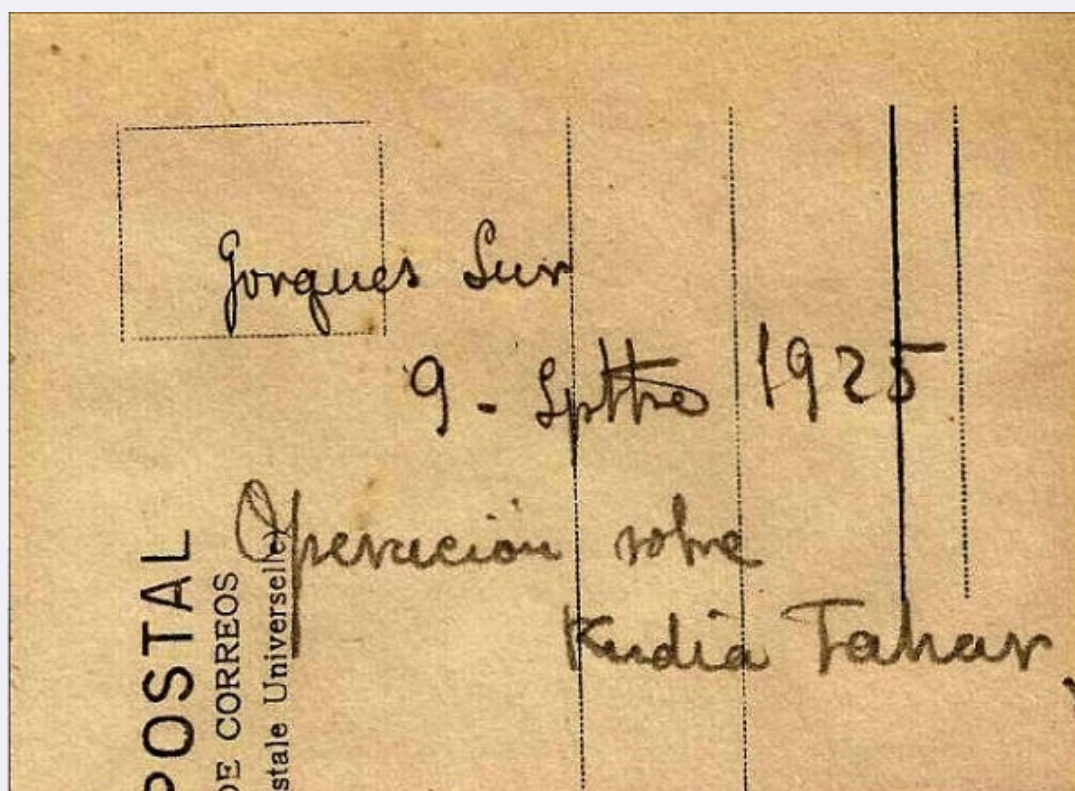 Gorgues Sur
9 - Spttre 1925
Operación sobre
Kudia Tahar
POSTAL
DE CORREOS
stale Universelle)